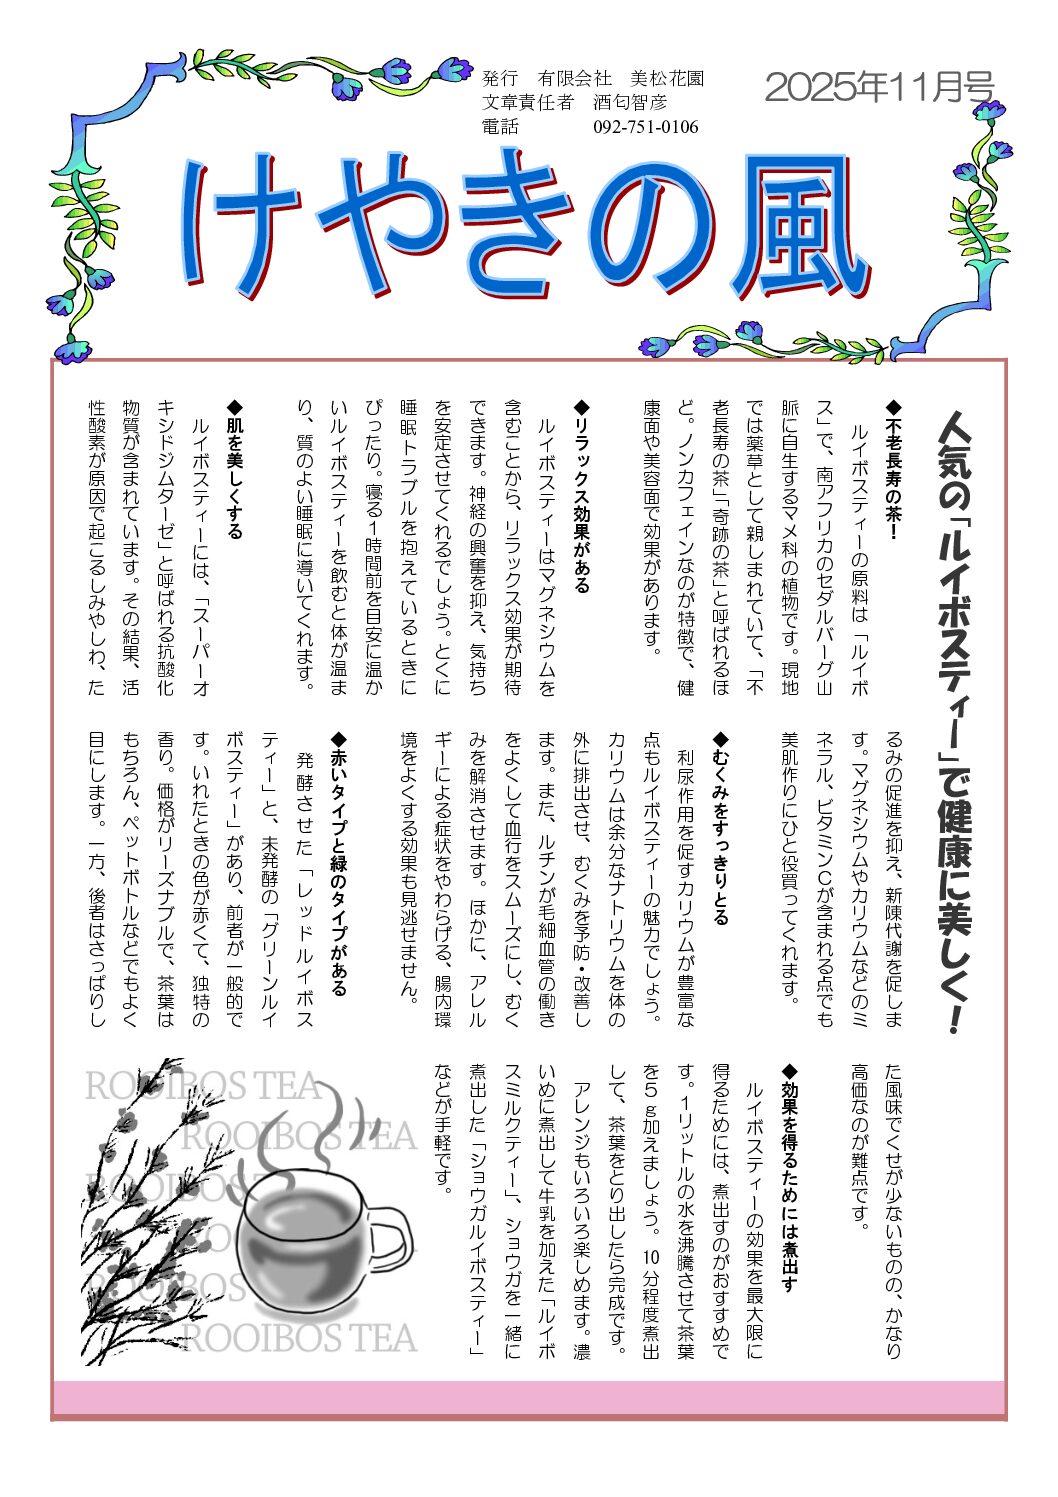 発行　有限会社　美松花園
文章責任者　酒匂智彦
電話　　　　092-751-0106
2025年11月号
けやきの風
人気の「ルイボスティー」で健康に美しく！
◆不老長寿の茶！
　ルイボスティーの原料は「ルイボ
ス」で、南アフリカのセダルバーグ山
脈に自生するマメ科の植物です。現地
では薬草として親しまれていて、「不
老長寿の茶」「奇跡の茶」と呼ばれるほ
ど。ノンカフェインなのが特徴で、健
康面や美容面で効果があります。
◆リラックス効果がある
　ルイボスティーはマグネシウムを
含むことから、リラックス効果が期待
できます。神経の興奮を抑え、気持ち
を安定させてくれるでしょう。とくに
睡眠トラブルを抱えているときに
ぴったり。寝る1時間前を目安に温か
いルイボスティーを飲むと体が温ま
り、質のよい睡眠に導いてくれます。
◆肌を美しくする
　ルイボスティーには、「スーパーオ
キシドジムターゼ」と呼ばれる抗酸化
物質が含まれています。その結果、活
性酸素が原因で起こるしみやしわ、た
るみの促進を抑え、新陳代謝を促しま
す。マグネシウムやカリウムなどのミ
ネラル、ビタミンCが含まれる点でも
美肌作りにひと役買ってくれます。
◆むくみをすっきりとる
　利尿作用を促すカリウムが豊富な
点もルイボスティーの魅力でしょう。
カリウムは余分なナトリウムを体の
外に排出させ、むくみを予防・改善し
ます。また、ルチンが毛細血管の働き
をよくして血行をスムーズにし、むく
みを解消させます。ほかに、アレル
ギーによる症状をやわらげる、腸内環
境をよくする効果も見逃せません。
◆赤いタイプと緑のタイプがある
　発酵させた「レッドルイボス
ティー」と、未発酵の「グリーンルイ
ボスティー」があり、前者が一般的で
す。いれたときの色が赤くて、独特の
香り。価格がリーズナブルで、茶葉は
もちろん、ペットボトルなどでもよく
目にします。一方、後者はさっぱりし
た風味でくせが少ないものの、かなり
高価なのが難点です。
◆効果を得るためには煮出す
　ルイボスティーの効果を最大限に
得るためには、煮出すのがおすすめで
す。1リットルの水を沸騰させて茶葉
を5g加えましょう。10分程度煮出
して、茶葉をとり出したら完成です。
　アレンジもいろいろ楽しめます。濃
いめに煮出して牛乳を加えた「ルイボ
スミルクティー」、ショウガを一緒に
煮出した「ショウガルイボスティー」
などが手軽です。
ROOIBOS TEA
ROOIBOS TEA
ROOIBOS
ROOIBOS TEA